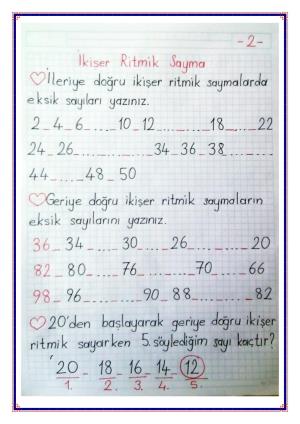 -2-
İkişer Ritmik Sayma
İleriye doğru ikişer ritmik saymalarda
eksik sayıları yazınız.
2_4_6_....._10_12_.........._18_....._22
24_26_...............34_36_38_.....
44_....._48_50
Geriye doğru ikişer ritmik saymaların
eksik sayılarını yazınız.
36_34_....._30_....._26_.........._20
82_80_....._76_.........._70_....._66
98_96_.........._90_88_.........._82
20'den başlayarak geriye doğru ikişer
ritmik sayarken 5. söylediğim sayı kaçtır?
20 - 18 - 16 - 14 - 12
1. 2. 3. 4. 5.